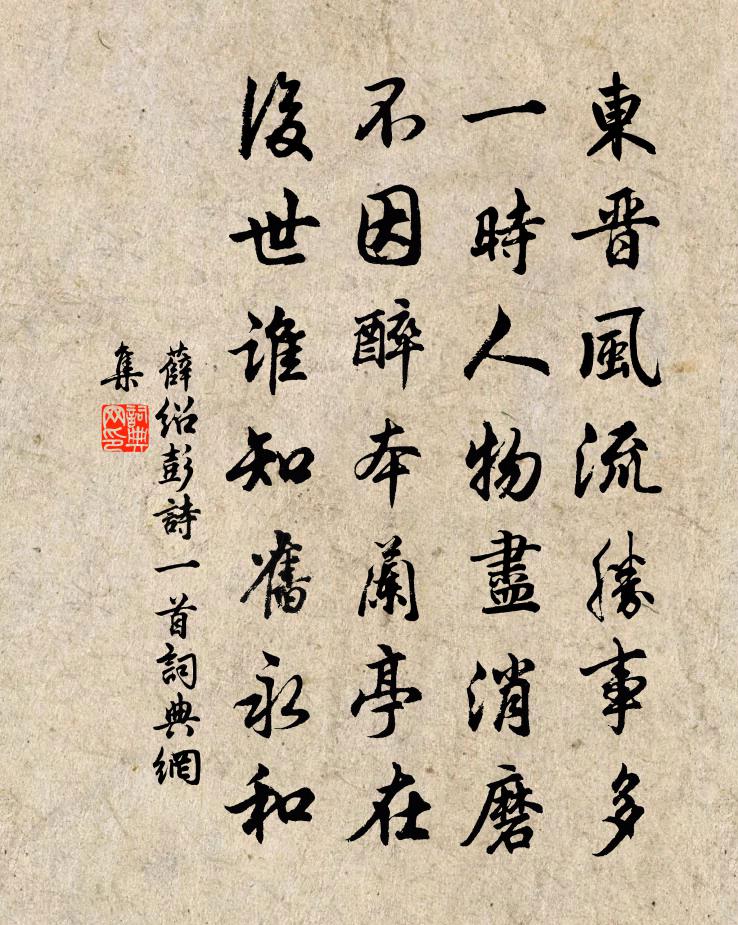 東晋風流勝事多
一時人物盡消磨
不因醉本蘭亭在
後世誰知舊永和
薛紹彭詩一首詞典網
集
詞典
网印